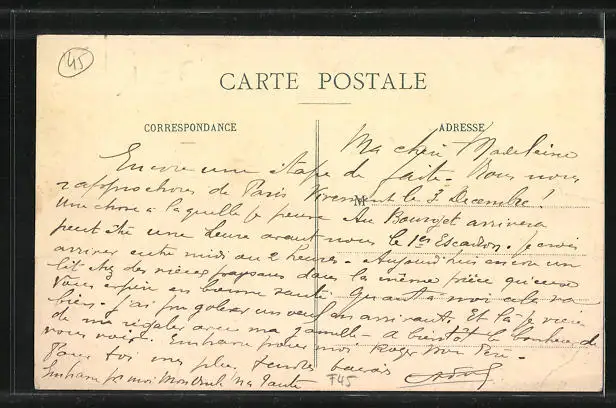 45
CARTE POSTALE
CORRESPONDANCE
ADRESSE
Ma chère Madeleine
Encore une étape de faite. Nous nous
rapprochons de Paris Vivement le 3 Décembre !
M
Une chose à laquelle je pense Au Bourget arrivera
peut être une heure avant nous le 1er Escadron. Je crois
arriver entre midi ou 2 heures. Aujourd'hui encore un
lit chez des vieux paysans dans la même pièce qu'eux
Vous espère en bonne santé Quant à moi cela va
bien. J'ai pu un en arrivant. Et là je viens
de me régaler avec ma gamelle. A bientôt le bonheur de
vous voir. Embrasse pour moi Roger mon
Pour toi mes plus tendres baisers
Embrasse pr moi Mon Ma Tante
F45